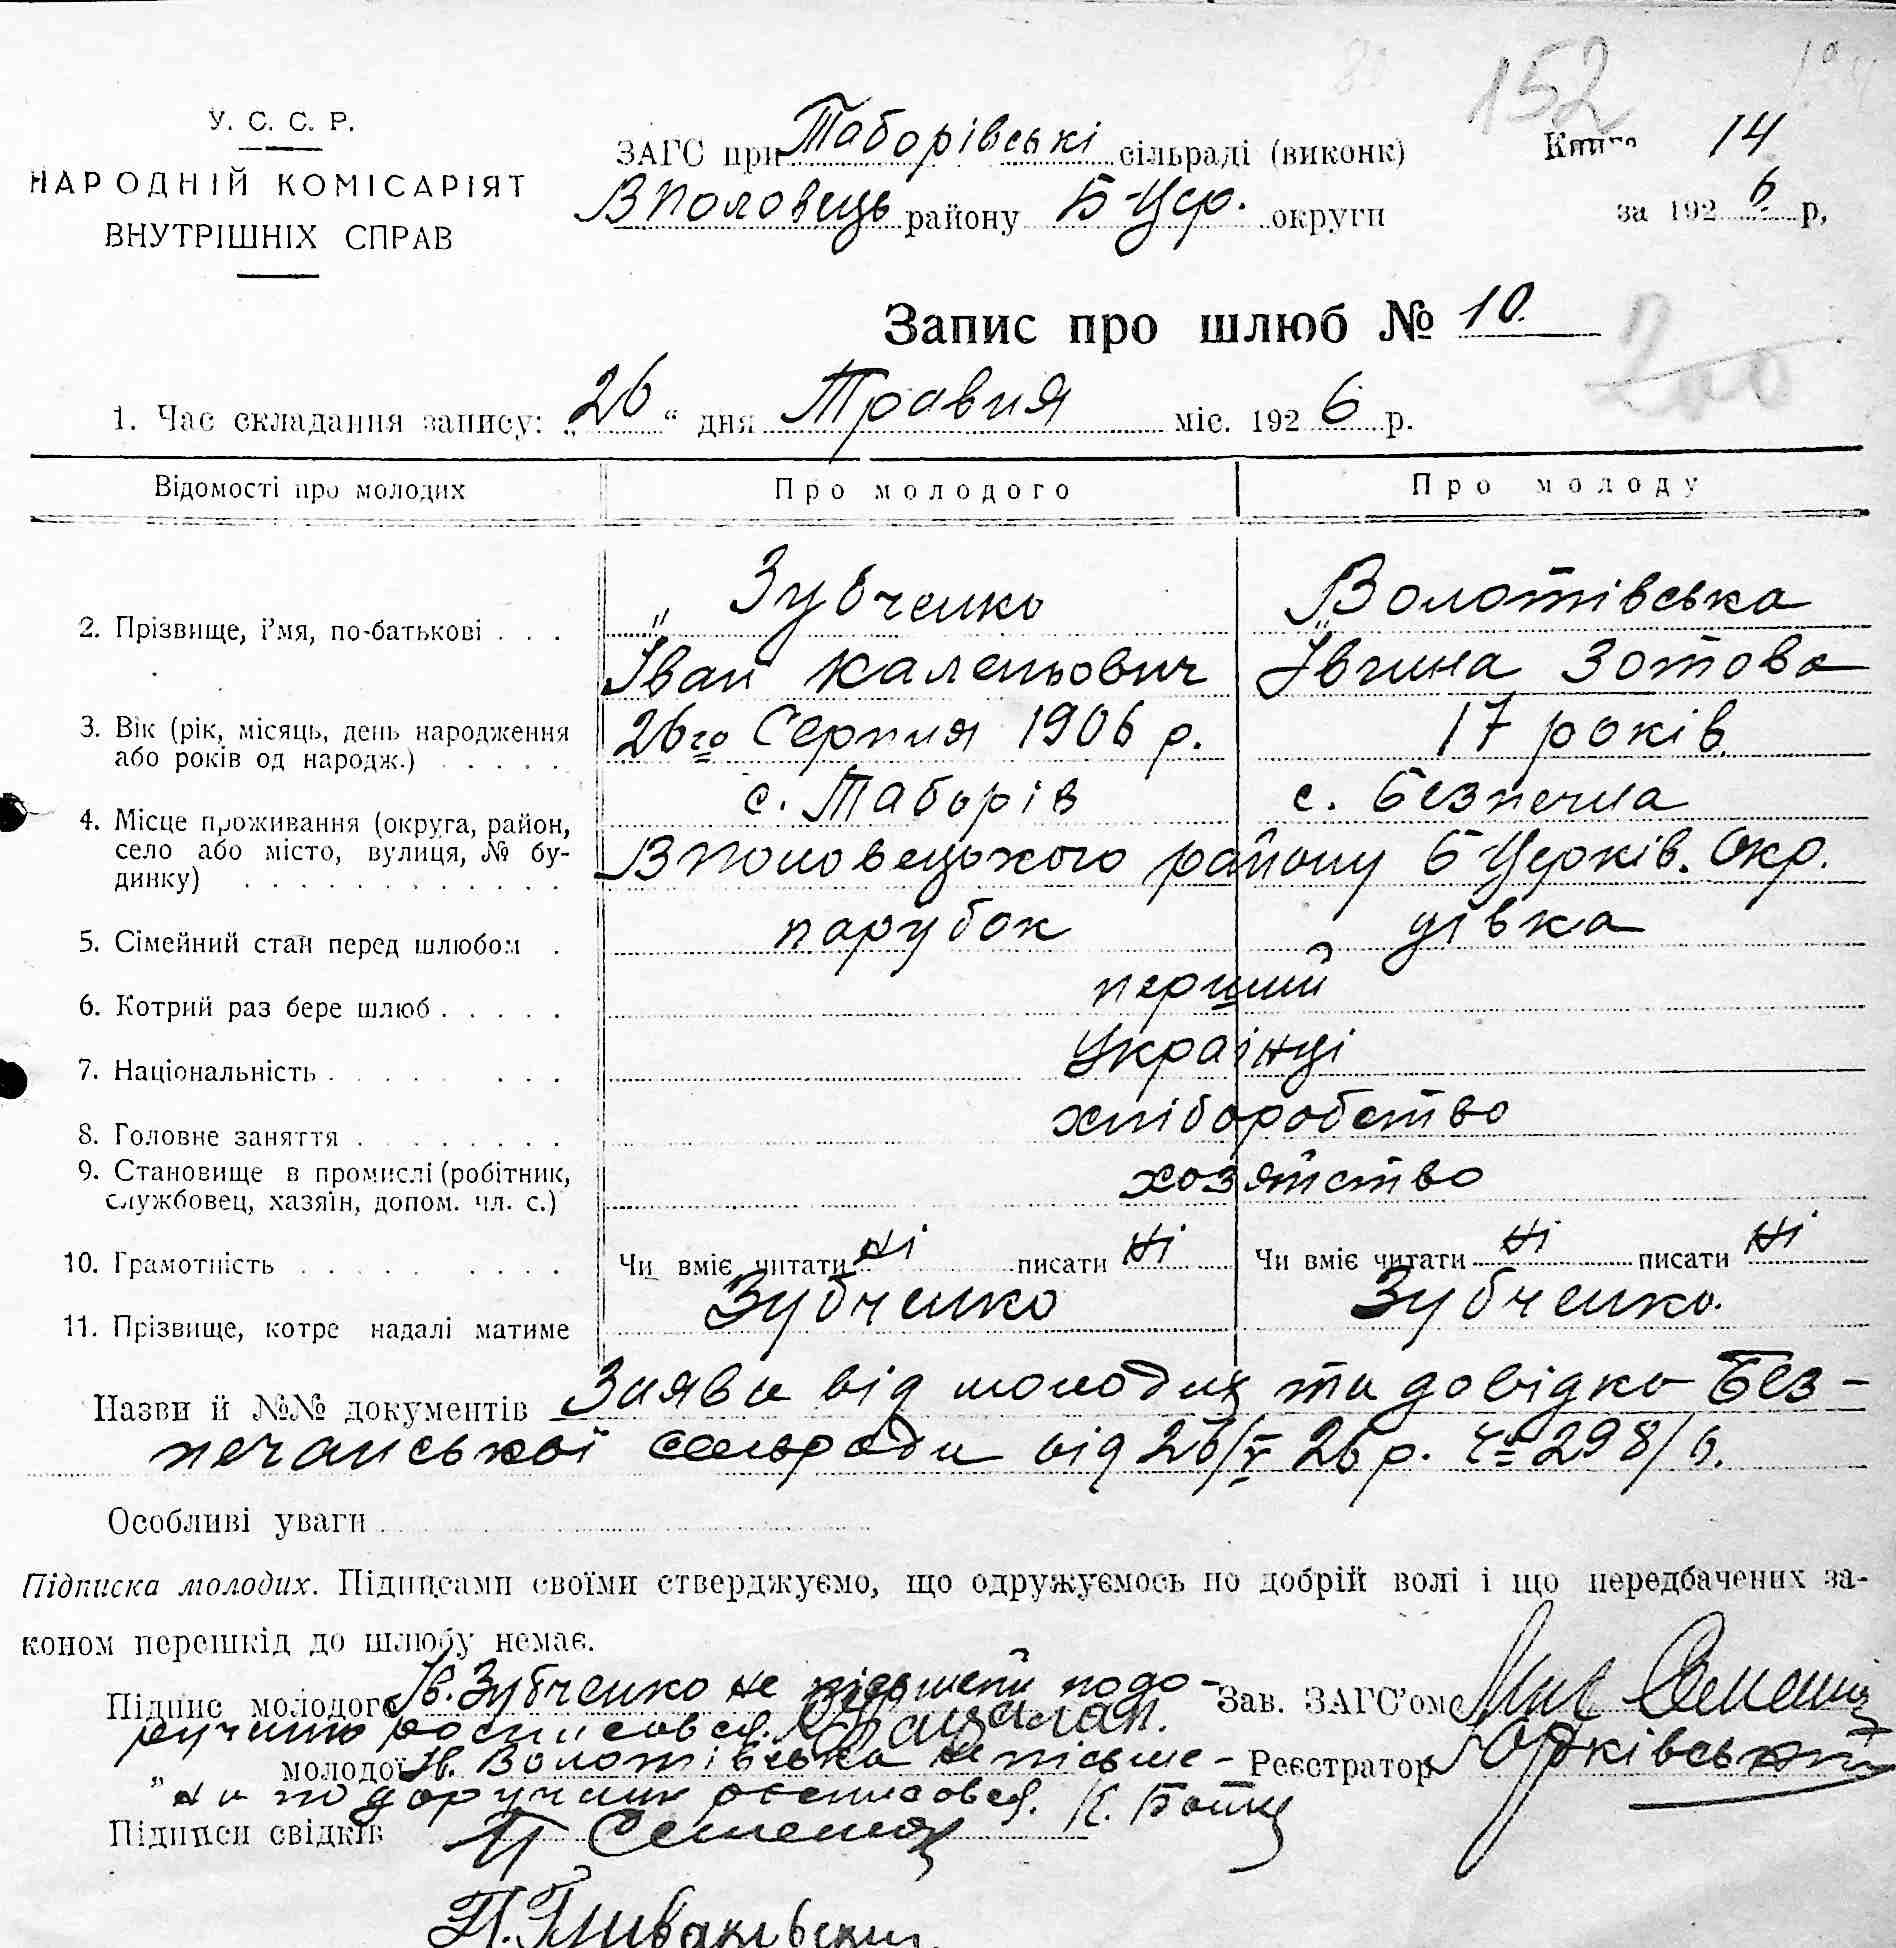 152
У. С. С. Р.
НАРОДНІЙ КОМІСАРІЯТ
ВНУТРІШНІХ СПРАВ
ЗАГС при Таборівські сільраді (виконк)
Вполовець району Б-Цер. округи
Книга 14
за 1926 р,
Запис про шлюб № 10.
1. Час складання запису: „26“ дня Травня міс. 1926 р.
Відомості про молодих Про молодого Про молоду
2. Прізвище, і'мя, по-батькові . . . Зубченко Волотівська
Іван Каленьович Івгина Зотова
3. Вік (рік, місяць, день народження 26го Серпня 1906 р. 17 років
або років од народж.) . . . . .
с. Таборів с. Безпечна
4. Місце проживання (округа, район,
село або місто, вулиця, № бу- Вполовецького району Б Церків. Окр.
динку) . . . . . . . . . . . .
5. Сімейний стан перед шлюбом . парубок дівка
6. Котрий раз бере шлюб . . . . . перший
7. Національність . . . . . . . Українці
8. Головне заняття . . . . . . . . хліборобство
9. Становище в промислі (робітник, хозяйство
службовец, хазяїн, допом. чл. с.)
10. Грамотність . . . . . . . . Чи вміє читати ні писати ні Чи вміє читати ні писати ні
11. Прізвище, котре надалі матиме Зубченко Зубченко.
Назви й №№ документів Заява від молодих та довідка Без-
печанської сельради від 26/V 26 р. ч. 298/б.
Особливі уваги
Підписка молодих. Підписами своїми стверджуємо, що одружуємось по добрій волі і що передбачених за-
коном перешкід до шлюбу немає.
Підпис молодого Ів. Зубченко не письмени по до-
ручиню росписовся.
Зав. ЗАГС'ом
молодої Ів. Волотівська не письме-
на по доручини росписовся.
Реєстратор Юрківський
Підписи свідків П Семенюк